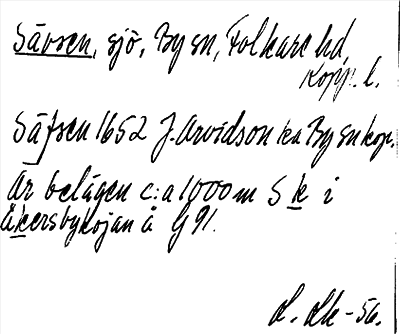 Sävsen, sjö, By sn, Folkare hd,
Kopp. l.
Säfsen 1652 J. Arvidson ka By sn kop.
Är belägen c:a 1000 m S k i
Åkersbykojan å G 91.
L. Lk - 56.